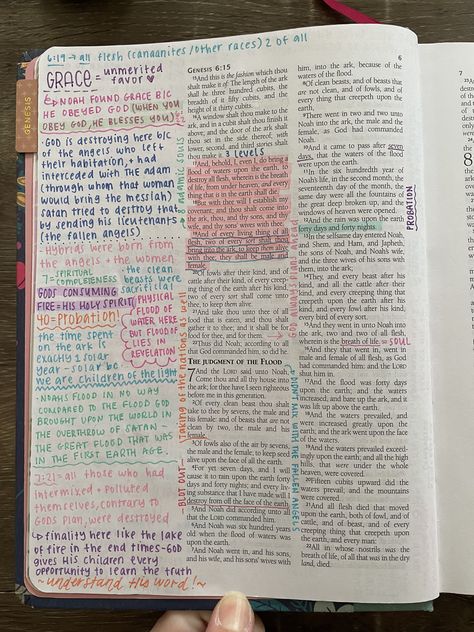 6:19 → all flesh (canaanites/other races) 2 of all
GRACE = unmerited
favor
NOAH FOUND GRACE B/C
HE OBEYED GOD (WHEN YOU
OBEY GOD, HE BLESSES YOU)
GENESIS
• GOD IS destroying here b/c
of the angels who left
their habitation, + had
interceded WITH THE adam
(through whom that woman
would bring the messiah)
satan tried to destroy that
by sending his lieutenants
(the fallen angels)
- Hybrids were born from
the angels + the women
7 = SPIRITUAL
COMPLETENESS
the clean
beasts were
sacrificial
GODS CONSUMING
FIRE = HIS HOLY SPIRIT
40 = Probation!
PHYSICAL
FLOOD OF
WATER HERE
BUT FLOOD OF
LIES IN
REVELATION
the time spent
on the ark is
exactly 1 solar
year - solar bc
we are children of the light
- NOAHS FLOOD IN NO WAY
COMPARED TO THE FLOOD GOD
BROUGHT UPON THE WORLD IN
THE OVERTHROW OF SATAN -
THE GREAT FLOOD THAT WAS
IN THE FIRST EARTH AGE.
7:21 - all those who had
intermixed + polluted
themselves, contrary to
GODS plan, were destroyed
↳ finality here like the lake
of fire in the end times - GOD
gives His children every
opportunity to learn the truth
~ understand His word! ~
GENESIS 6:15
15And this is the fashion which thou
shalt make it of: The length of the ark
shall be three hundred cubits, the
breadth of it fifty cubits, and the
height of it thirty cubits.
16A window shalt thou make to the
ark, and in a cubit shalt thou finish it
above; and the door of the ark shalt
thou set in the side thereof; with
lower, second, and third stories shalt
thou make it. 3 levels
17And, behold, I, even I, do bring a
flood of waters upon the earth, to
destroy all flesh, wherein is the breath
of life, from under heaven; and every
thing that is in the earth shall die.
18But with thee will I establish my
covenant; and thou shalt come into
the ark, thou, and thy sons, and thy
wife, and thy sons' wives with thee.
19And of every living thing of all
flesh, two of every sort shalt thou
bring into the ark, to keep them alive
with thee; they shall be male and
female.
20Of fowls after their kind, and of
cattle after their kind, of every creep-
ing thing of the earth after his kind,
two of every sort shall come unto
thee, to keep them alive.
21And take thou unto thee of all
food that is eaten, and thou shalt
gather it to thee; and it shall be for
food for thee, and for them.
22Thus did Noah; according to all
that God commanded him, so did he.
THE JUDGMENT OF THE FLOOD
7 And the LORD said unto Noah,
Come thou and all thy house into
the ark; for thee have I seen righteous
before me in this generation.
2Of every clean beast thou shalt
take to thee by sevens, the male and
his female: and of beasts that are not
clean by two, the male and his
female.
3Of fowls also of the air by sevens,
the male and the female; to keep seed
alive upon the face of all the earth.
4For yet seven days, and I will
cause it to rain upon the earth forty
days and forty nights; and every liv-
ing substance that I have made will I
destroy from off the face of the earth.
5And Noah did according unto all
that the LORD commanded him.
6And Noah was six hundred years
old when the flood of waters was
upon the earth.
7And Noah went in, and his sons,
and his wife, and his sons' wives with
6
him, into the ark, because of the
waters of the flood.
8Of clean beasts, and of beasts that
are not clean, and of fowls, and of
every thing that creepeth upon the
earth,
9There went in two and two unto
Noah into the ark, the male and the
female, as God had commanded
Noah.
10And it came to pass after seven
days, that the waters of the flood
were upon the earth.
11In the six hundredth year of
Noah's life, in the second month, the
seventeenth day of the month, the
same day were all the fountains of
the great deep broken up, and the
windows of heaven were opened.
12And the rain was upon the earth
forty days and forty nights.
PROBATION
13In the selfsame day entered Noah,
and Shem, and Ham, and Japheth,
the sons of Noah, and Noah's wife,
and the three wives of his sons with
them, into the ark;
14They, and every beast after his
kind, and all the cattle after their
kind, and every creeping thing that
creepeth upon the earth after his
kind, and every fowl after his kind,
every bird of every sort.
15And they went in unto Noah into
the ark, two and two of all flesh,
wherein is the breath of life. = SOUL
16And they that went in, went in
male and female of all flesh, as God
had commanded him: and the LORD
shut him in.
17And the flood was forty days
upon the earth; and the waters
increased, and bare up the ark, and it
was lift up above the earth.
18And the waters prevailed, and
were increased greatly upon the
earth; and the ark went upon the face
of the waters.
19And the waters prevailed
exceedingly upon the earth; and all
the high hills, that were under the
whole heaven, were covered.
20Fifteen cubits upward did the
waters prevail; and the mountains
were covered.
21And all flesh died that moved
upon the earth, both of fowl, and of
cattle, and of beast, and of every
creeping thing that creepeth upon
the earth, and every man:
22All in whose nostrils was the
breath of life, of all that was in the dry
land, died.